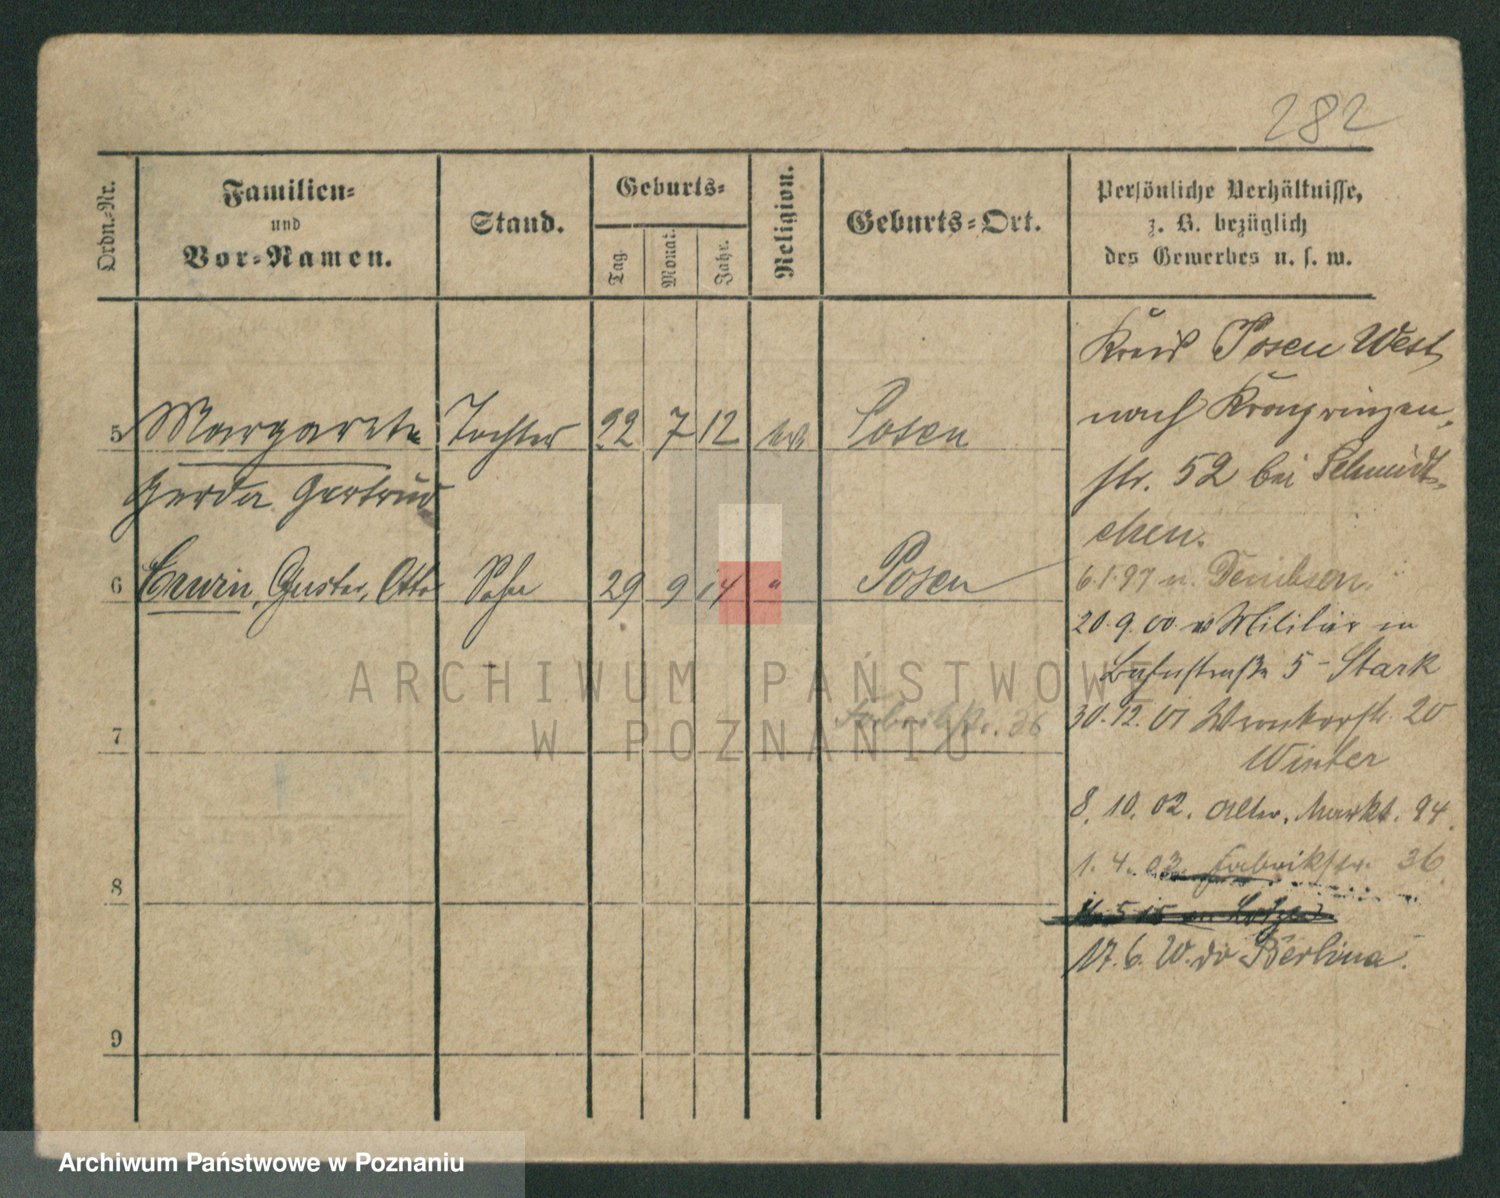 282
Ordn.-Nr.
Familien-
und
Vor-Namen.
Stand.
Geburts-
Tag.
Monat.
Jahr.
Religion.
Geburts-Ort.
Persönliche Verhältnisse,
z. B. bezüglich
des Gewerbes u. s. w.
Kreis Posen West
nach Kronprinzen-
str. 52 bei Schmidt-
chen.
5 Margarete Tochter 22 7 12 ev Posen
Gerda Gertrud
6 Erwin, Gustav, Otto Sohn 29 9 14 " Posen
6.1.97 n. Dembsen
20.9.00 Militär in
Bahnstraße 5 - Stark
30.12.01 Wronkerstr. 20
Winter
8.10.02. Alter Markt. 94.
1.4.03. Fabrikstr. 36
17.6.20. Berlina.
Fabrikstr. 36
7
8
9
ARCHIWUM PAŃSTWOWE
W POZNANIU
Archiwum Państwowe w Poznaniu